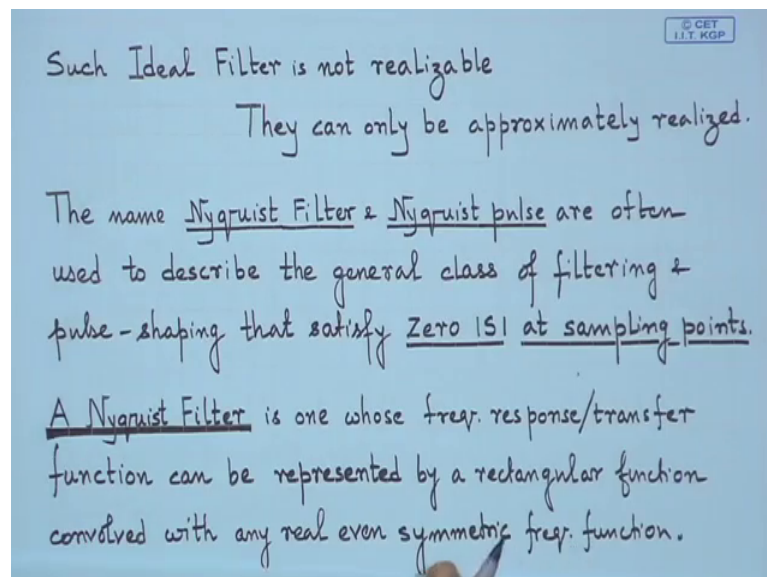 © CET
I.I.T. KGP
Such Ideal Filter is not realizable
They can only be approximately realized.
The name Nyquist Filter & Nyquist pulse are often
used to describe the general class of filtering &
pulse-shaping that satisfy Zero ISI at sampling points.
A Nyquist Filter is one whose freq. response/transfer
function can be represented by a rectangular function
convolved with any real even symmetric freq. function.